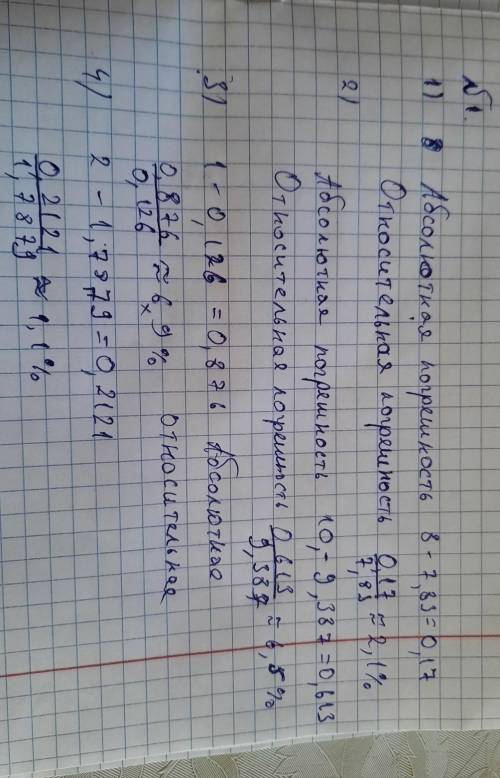 №1.
1) Абсолютная погрешность 8 - 7,83 = 0,17
Относительная погрешность 0,17/7,83 ≈ 2,1%
2)
Абсолютная погрешность 10, - 9,387 = 0,613
Относительная погрешность 0,613/9,387 ≈ 6,5%
3) 1 - 0,126 = 0,876 Абсолютная
0,876/0,126 ≈ 6,9% относительная
4) 2 - 1,7879 = 0,2121
0,2121/1,7879 ≈ 1,1%